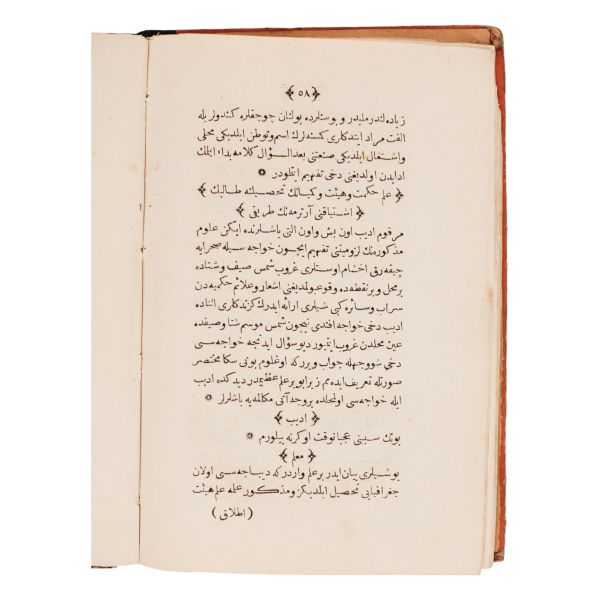 ﴿ ٥٨ ﴾
زیاده لندرملیدر و بوسنلرده بولنان چوجقلره کندولریله
الفت مراد ایتدکلری کسنه لرك اسم و توطن ایلدیکی محلی
و اشتغال ایلدیکی صنعتنی بعد السؤال کلامه بداء ایتمك
ادابدن اولدیغنی دخی تفهیم ایتلودر
﴿ علم حکمت و هیئت و کتباتك تحصیلنه طالبك ﴾
﴿ اشتیاقنی آرترمه نك طریقی ﴾
مرقوم ادیب اون بش و اون التی یاشلرنده ایکن علوم
مذکوره نك لزومیتنی تفهیم ایچون خواجه سیله صحرایه
چیقه رق اخشام اوستلری غروب شمس صیف و شتاده
بر محل و بر نقطه ده وقوعبولدیغنی اشعار و علائم حکمیه دن
سراب و سائره کبی شیلری ارائه ایدرك کزندکلری اثناده
ادیب دخی خواجه افندی نیچون شمس موسم شتا و صیفده
عین محلدن غروب ایتیور دیو سؤال ایدنجه خواجه سی
دخی شو وجهله جواب ویرر که اوغلوم بونی سکا مختصر
صورتله تعریف ایده مم زیرا بو بر علم عظیمدر دیدکده ادیب
ایله خواجه سی اولمجلده بروجه آتی مکالمه یه باشلرلر
﴿ ادیب ﴾
بونك سببنی عجبا نوقت اوکرنه بیلورم
﴿ معلم ﴾
بو شیلری بیان ایدر بر علم واردر که دیباجه سی اولان
جغرافیایی تحصیل ایلدیکز و مذکور علمه علم هیئت
( اطلاق )